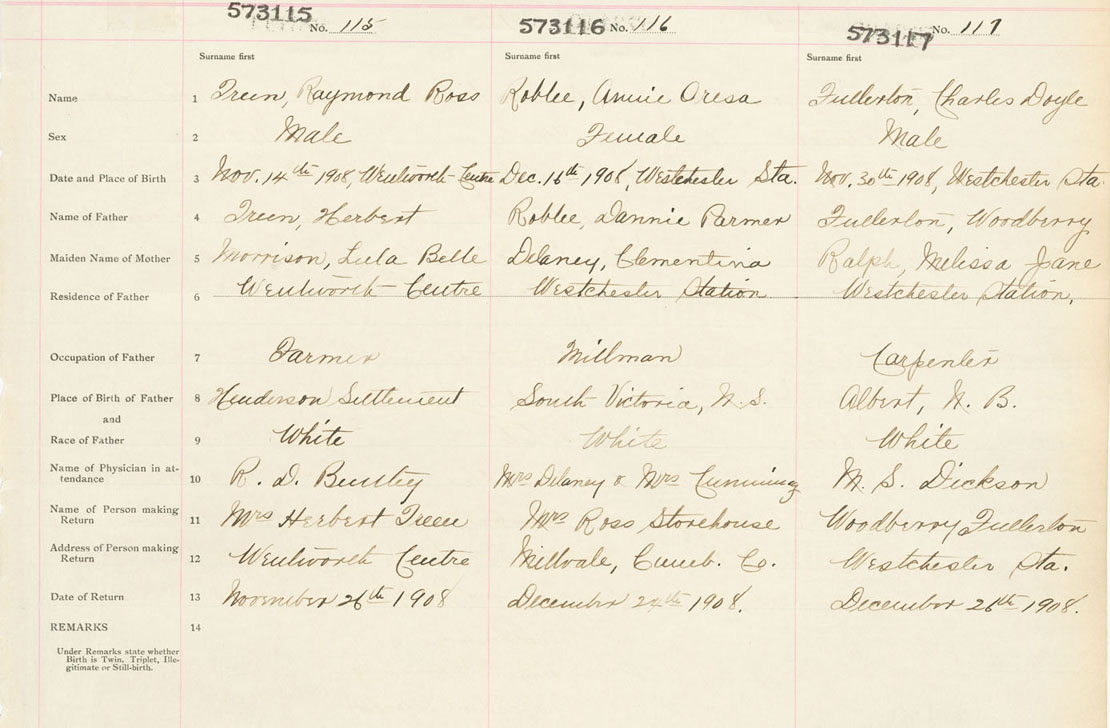 573115 No. 115 573116 No. 116 573117 No. 117
Surname first Surname first Surname first
Name 1 Treen, Raymond Ross Roblee, Annie Oresa Fullerton, Charles Doyle
Sex 2 Male Female Male
Date and Place of Birth 3 Nov. 14th 1908, Wentworth Centre Dec. 16th 1908, Westchester Sta. Nov. 30th 1908, Westchester Sta.
Name of Father 4 Treen, Herbert Roblee, Dannie Parmer Fullerton, Woodberry
Maiden Name of Mother 5 Morrison, Lula Belle Delaney, Clementina Ralph, Melissa Jane
Residence of Father 6 Wentworth Centre Westchester Station Westchester Station,
Occupation of Father 7 Farmer Millman Carpenter
Place of Birth of Father 8 Henderson Settlement South Victoria, N.S. Albert, N. B.
and
Race of Father 9 White White White
Name of Physician in at-
tendance 10 R. D. Mrs Delaney & Mrs Cumming M. S. Dickson
Name of Person making
Return 11 Mrs Herbert Treen Mrs Ross Storehouse Woodberry Fullerton
Address of Person making
Return 12 Wentworth Centre Millvale, Cumb. Co. Westchester Sta.
Date of Return 13 November 26th 1908 December 24th 1908. December 26th 1908.
REMARKS 14
Under Remarks state whether
Birth is Twin, Triplet, Ille-
gitimate or Still-birth.